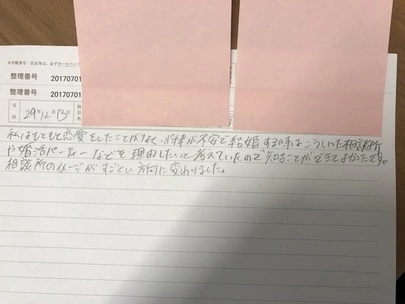 整理番号 20170701
整理番号 20170701
29年12月13日
私はもともと恋愛をしたことがなく、将来が不安で結婚する時はこういった相談所
や婚活パーティーなどを利用したいと考えていたので知ることができてよかったです。
相談所のイメージがすごくいい方向に変わりました。